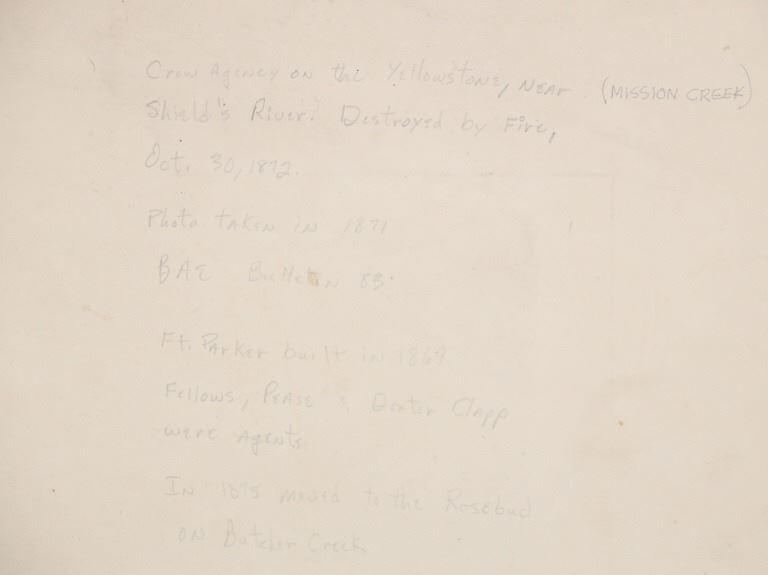 Crow Agency on the Yellowstone, near (MISSION CREEK)
Shield's River. Destroyed by Fire,
Oct. 30, 1872.
Photo taken in 1871
BAE Bulletin 83.
Ft. Parker built in 1869
Fellows, Pease & Dexter Clapp
were Agents
In 1875 moved to the Rosebud
on Butcher Creek